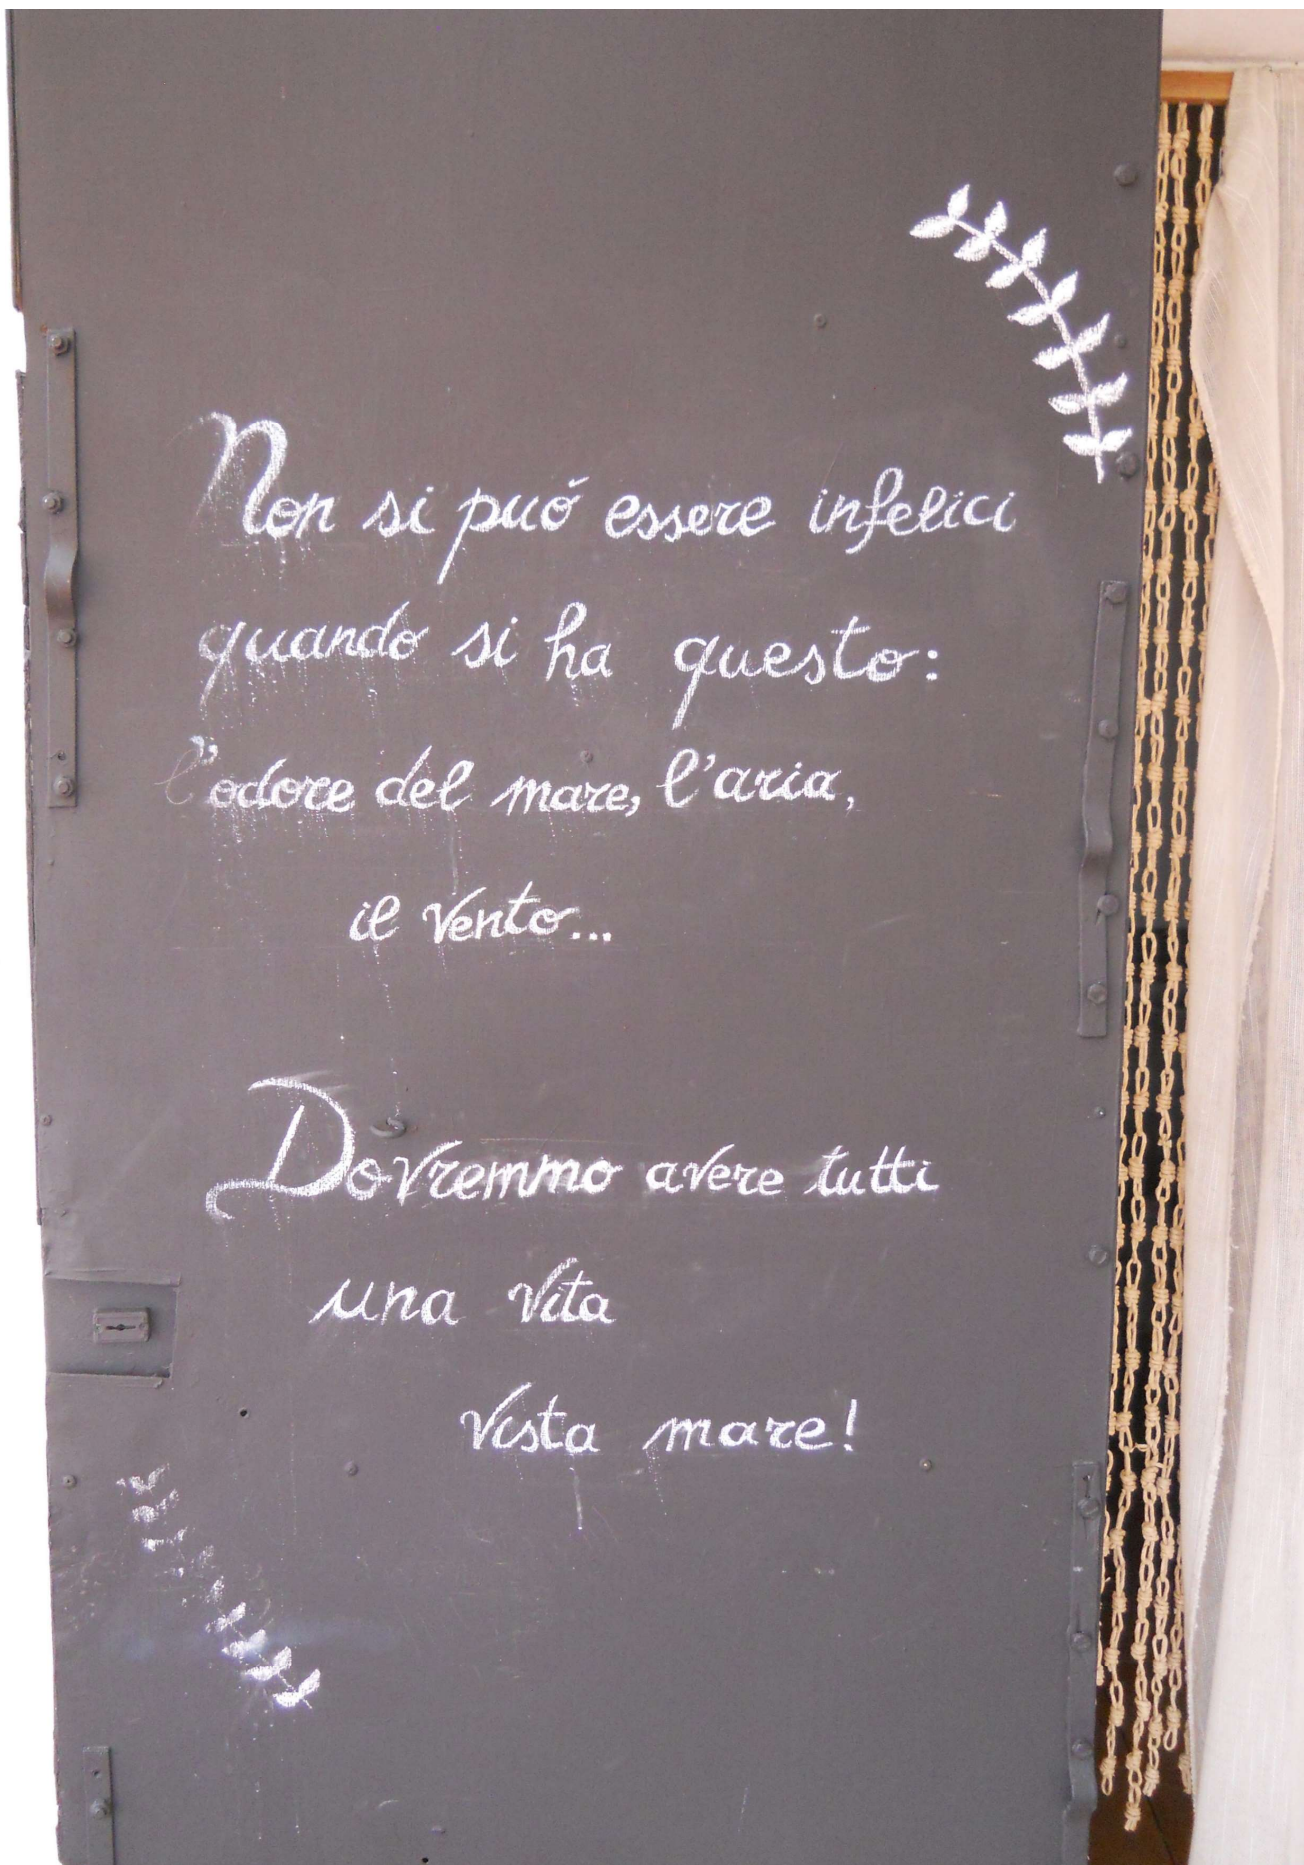 Non si puó essere infelici
quando si ha questo:
l'odore del mare, l'aria,
il vento...
Dovremmo avere tutti
una vita
vista mare!